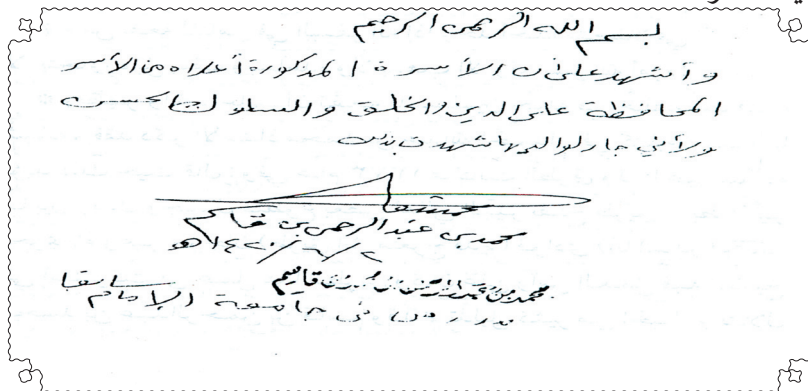 بسم الله الرحمن الرحيم
وأشهد على أن الأسرة المذكورة أعلاه من الأسر
المحافظة على الدين والخلق والسلوك الحسن
ولأني جار لوالديها شهدت بذلك
محمد بن عبد الرحمن بن قاسم
١٤٢٠/٦/٢هـ
محمد بن عبد الرحمن بن قاسم
مدرس في جامعة الإمام سابقا